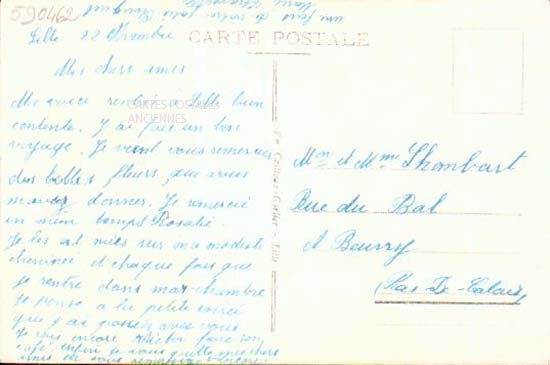 590462
Lille 22 Novembre
CARTE POSTALE
Mes chers amis
Me voice rendue à Lille bien
contente. J'ai fais un bon
voyage. Je vient vous remercier
des belles fleurs que vous
m'avez donner. Je remercie
en même temps Rosalie.
Je les et mies sur ma modeste
cheminée et chaque fois que
je rentre dans ma chambre
je pense a la petite soirée
que j'ai passée avec vous
Je vois encore Victor faire son
café enfin je vous quitte mes chers
amis en vous remerciant encore
CARTES POSTALES
ANCIENNES
Mon et Mme Lhombart
Rue du Bal
A Beuvry
(Pas-De-Calais)